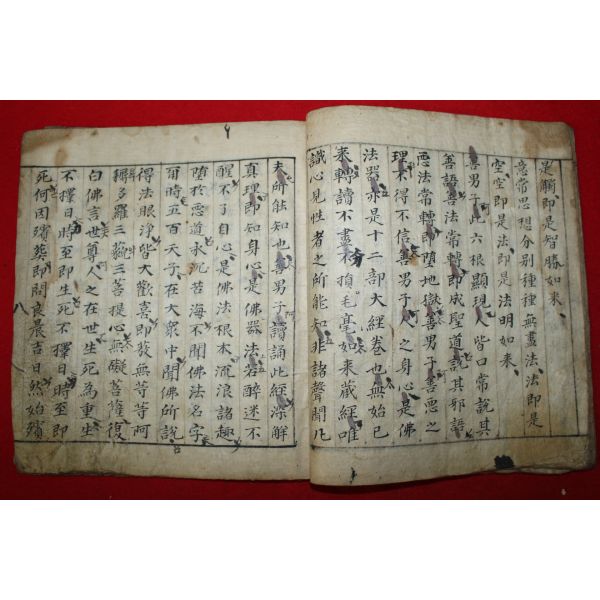 是觸即是智勝如來
意常思想分別種種無盡法法即是
空空即是法即是法明如來
善男子此六根顯現人皆口常說其
善語善法常轉即成聖道說其邪語
惡法常轉即墮地獄善男子善惡之
理不得不信善男子人之身心是佛
法器亦是十二部大經卷也無始已
來轉讀不盡不損毛毫如來藏經唯
識心見性者之所能知非諸聲聞凡
夫所能知也善男子讀誦此經深解
真理即知身心是佛器法若醉迷不
醒不了自心是佛法根本流浪諸趣
墮於惡道永沉苦海不聞佛法名字
爾時五百天子在大衆中聞佛所說
得法眼淨皆大歡喜即發無等等阿
耨多羅三藐三菩提心無礙菩薩復
白佛言世尊人之在世生死為重生
不擇日時至即生死不擇日時至即
死何因殯葬即問良晨吉日然始殯
八